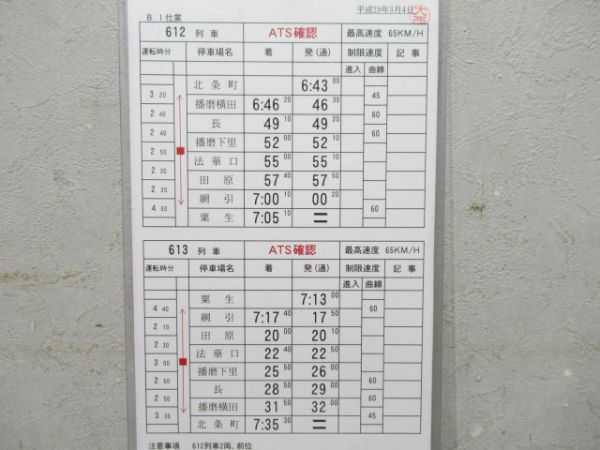 平成29年3月4日
B 1仕業
612 列車 ATS確認 最高速度 65KM/H
運転時分 停車場名 着 発(通) 制限速度 記事
進入 曲線
北条町 6:43 00
3 20 45
播磨横田 6:46 20 46 30
2 40 60
長 49 10 49 20
2 40 60
播磨下里 52 00 52 10
2 50
法華口 55 00 55 10
2 30
田原 57 40 57 50
2 20
網引 7:00 10 00 20
4 50 60
粟生 7:05 10 =
613 列車 ATS確認 最高速度 65KM/H
運転時分 停車場名 着 発(通) 制限速度 記事
進入 曲線
粟生 7:13 00
4 40 60
網引 7:17 40 17 50
2 10
田原 20 00 20 10
2 30
法華口 22 40 22 50
3 00
播磨下里 25 50 26 00
2 50 60
長 28 50 29 00
2 50 60
播磨横田 31 50 32 00
3 30 45
北条町 7:35 30 =
注意事項 612列車2両、前位